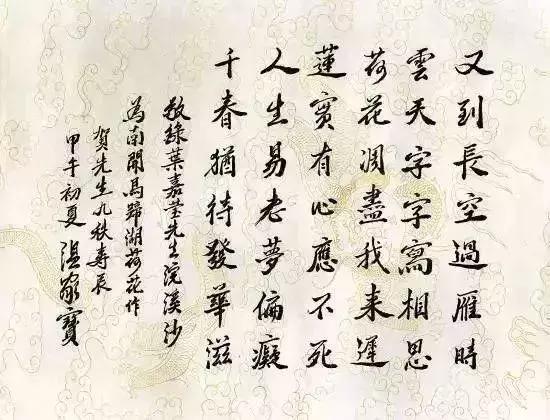 又到長空過雁時
雲天字字寫相思
荷花凋盡我来遲
蓮實有心應不死
人生易老夢偏癡
千春猶待發華滋
敬録葉嘉瑩先生浣溪沙
為南開馬蹄湖荷花作
賀先生九秩寿辰
甲午初夏 温家寶